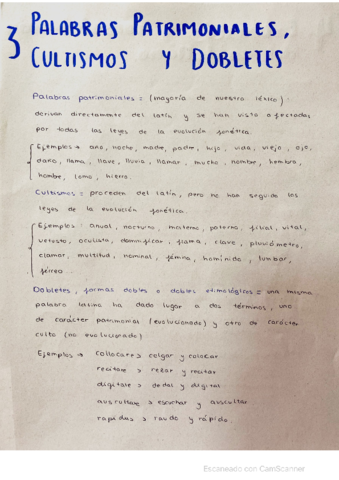 3 PALABRAS PATRIMONIALES,
CULTISMOS Y DOBLETES
Palabras patrimoniales = (mayoría de nuestro léxico)
derivan directamente del latín y se han visto afectadas
por todas las leyes de la evolución fonética.
Ejemplos → ano, noche, madre, padre, hijo, vida, viejo, ojo,
daño, llama, llave, lluvia, llamar, mucho, nombre, hembra,
hombre, lomo, hierro.
Cultismos = proceden del latín, pero no han seguido las
leyes de la evolución fonética.
Ejemplos: anual, nocturno, materno, paterno, filial, vital,
vetusto, oculista, damnificar, flama, clave, pluviómetro,
clamar, multitud, nominal, fémina, homínido, lumbar,
férreo...
Dobletes, formas dobles o dobles etimológicos = una misma
palabra latina ha dado lugar a dos términos, uno
de carácter patrimonial (evolucionado) y otro de carácter
culto (no evolucionado)
Ejemplos → collocare > colgar y colocar
recitare > rezar y recitar
digitale > dedal y digital
auscultare > escuchar y auscultar
rapidus > raudo y rápido.
Escaneado con CamScanner